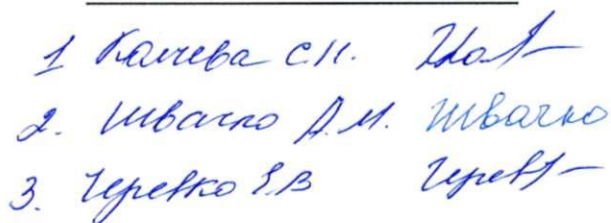 1 Калчева С.П.
2. Швачко А.М. Швачко
3. Черевко Е.В Черев